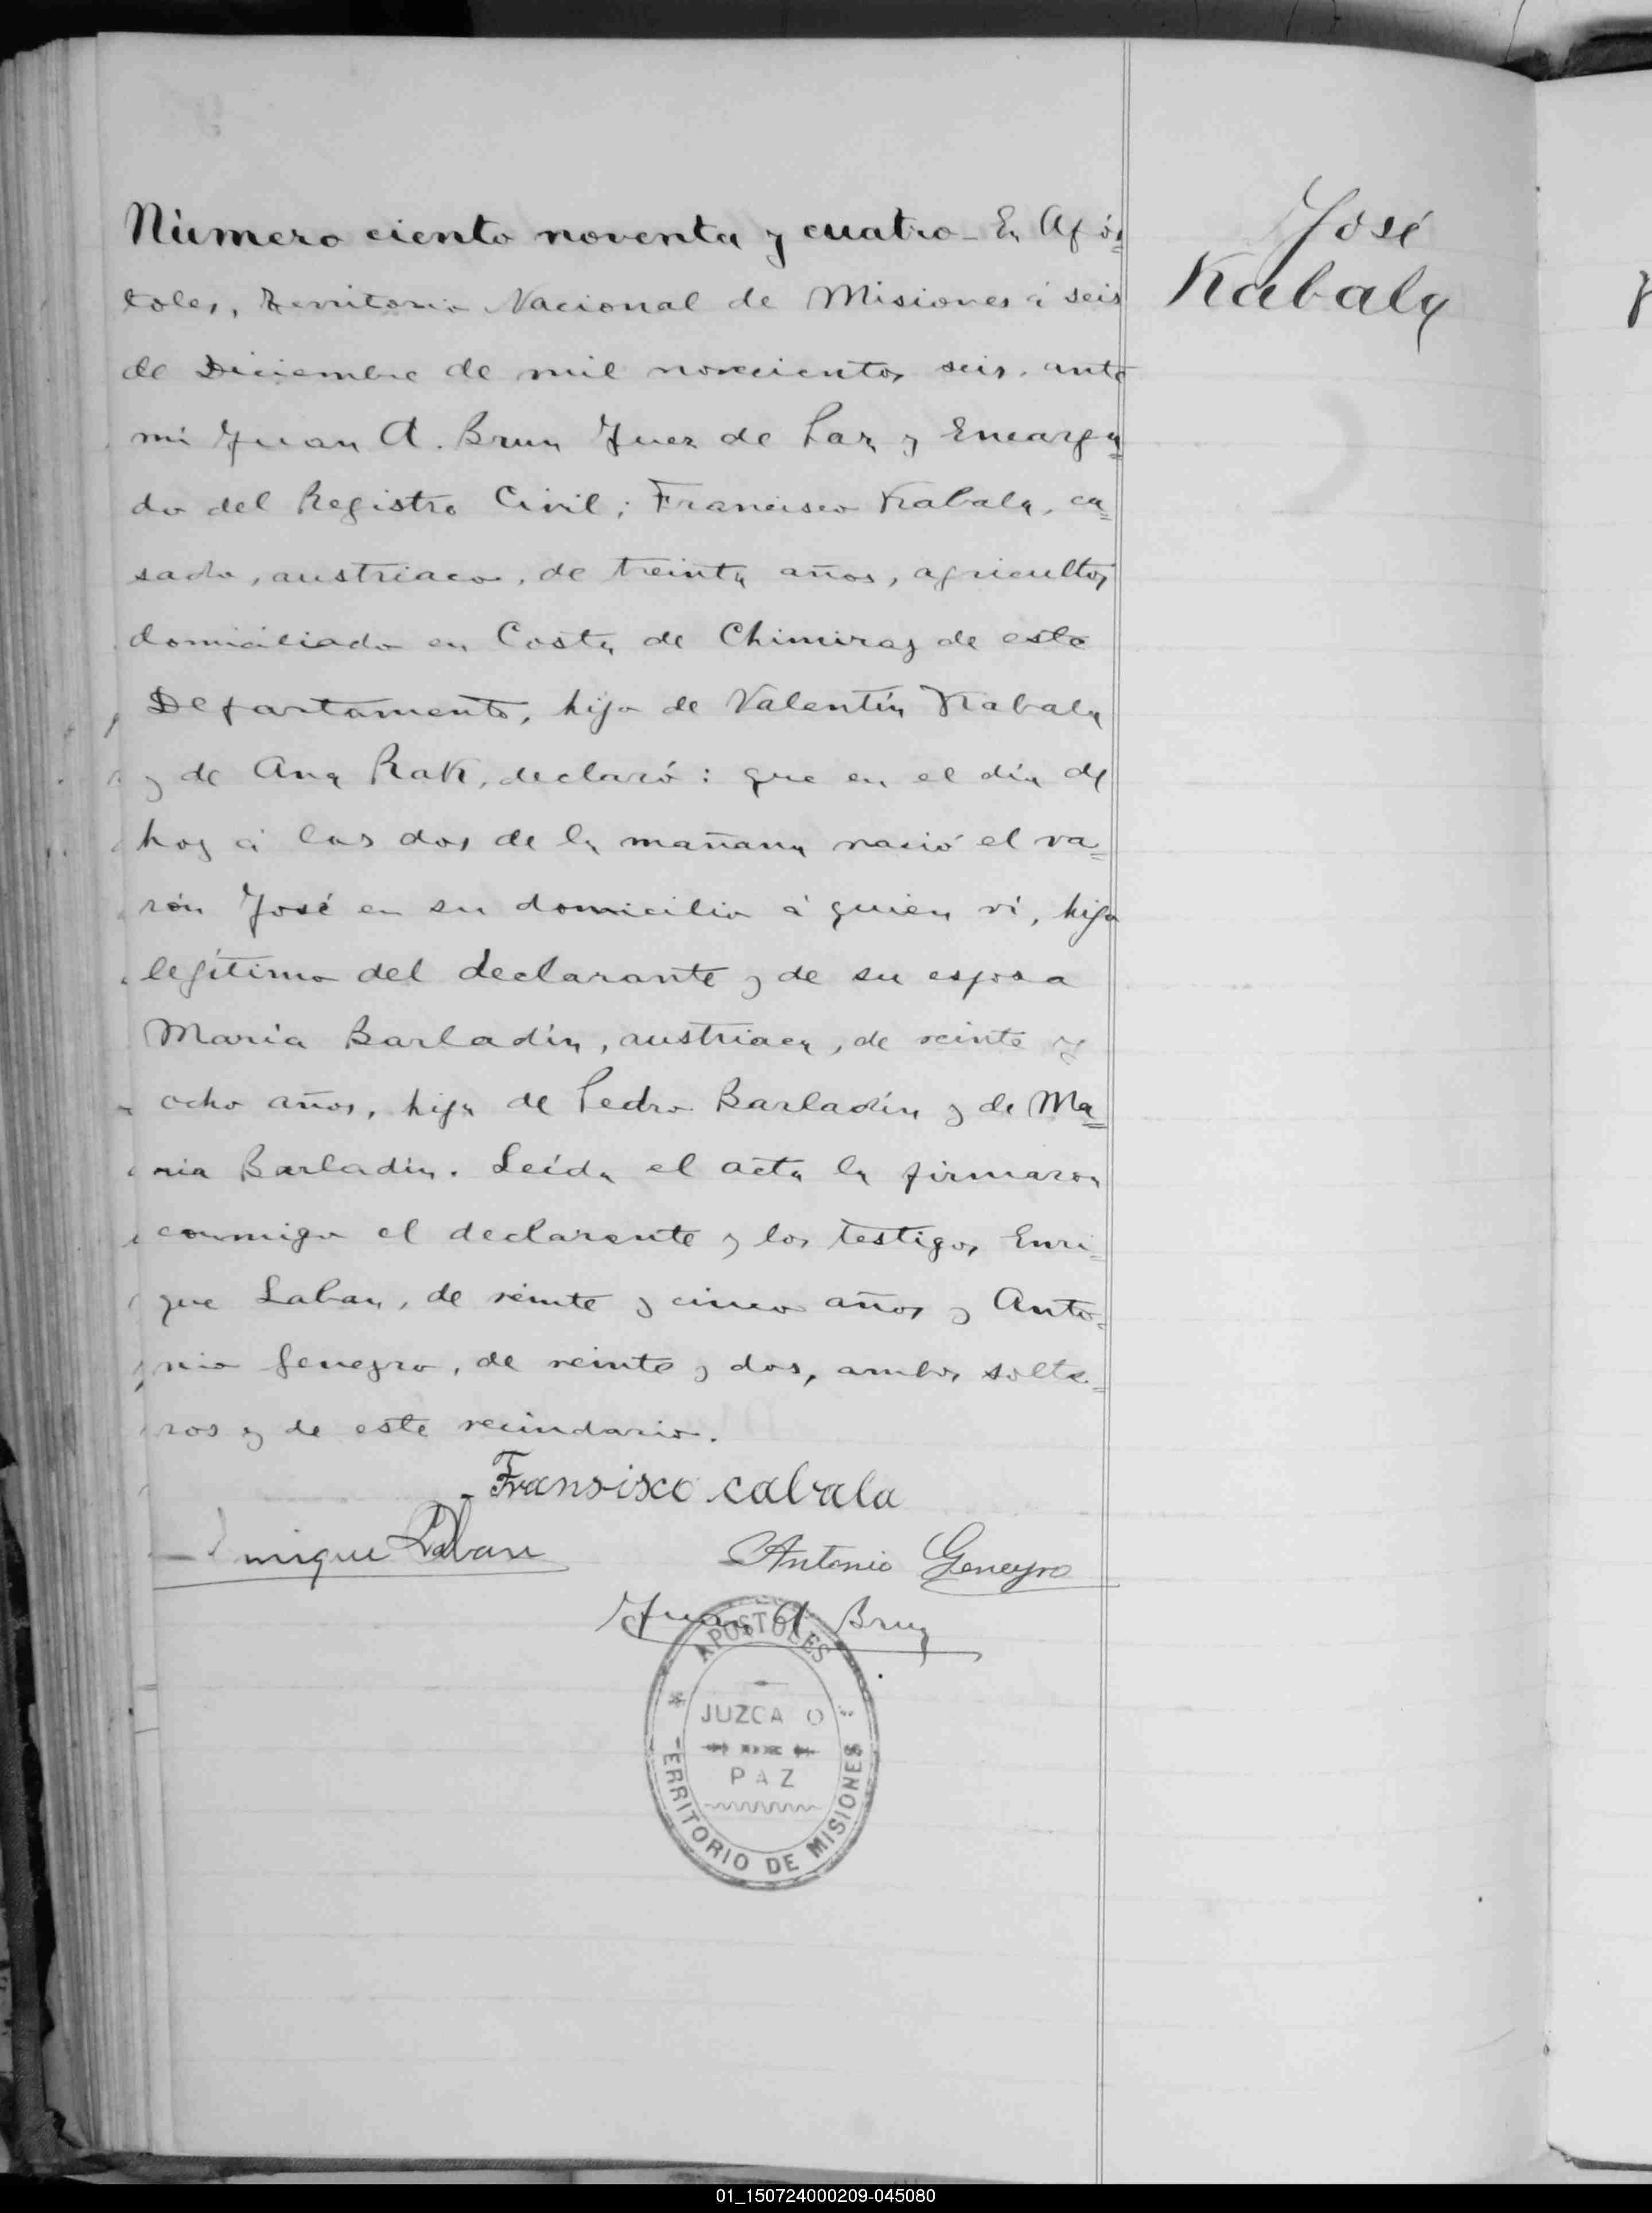 José
Kabala
Número ciento noventa y cuatro - En Após=
toles, Territorio Nacional de Misiones á seis
de Diciembre de mil novecientos seis, ante
mí Juan A. Brun Juez de Paz y Encarga=
do del Registro Civil; Francisco Kabala, ca=
sado, austriaco, de treinta años, agricultor
domiciliado en Costa de Chimiray de este
Departamento, hijo de Valentín Kabala
y de Ana Rak, declaró: que en el día de
hoy á las dos de la mañana nació el va=
rón José en su domicilio á quien ví, hijo
legítimo del declarante y de su esposa
María Barladín, austriaca, de veinte y
ocho años, hija de Pedro Barladín y de Ma=
ria Barladín. Leída el acta la firmaron
conmigo el declarante y los testigos Enri=
que Laban, de veinte y cinco años y Anto=
nio Geneyro, de veinte y dos, ambos solte=
ros y de este vecindario.
Fransisco cabala
Enrique Laban Antonio Geneyro
Juan A Brun
APOSTOLES
JUZGADO
PAZ
TERRITORIO DE MISIONES
01_150724000209-045080